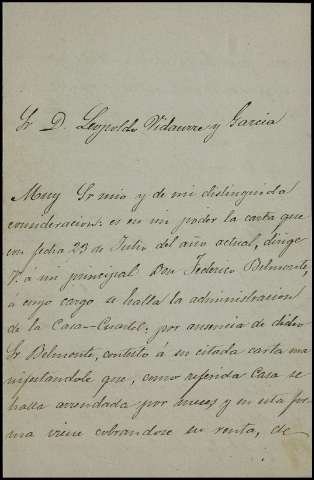 Sr D. Leopoldo Vidaurre y Garcia
Muy Sr mio y de mi distinguida
consideracion: es en mi poder la carta que
con fecha 23 de Julio del año actual, dirige
V. á mi principal Don Federico Belmonte,
á cuyo cargo se halla la administracion
de la Casa-Cuartel; por ausencia de dicho
Sr Belmonte, contesto á su citada carta ma
nifestandole que, como referida Casa se
halla arrendada por meses y en esta for
ma viene cobrandose su renta, de